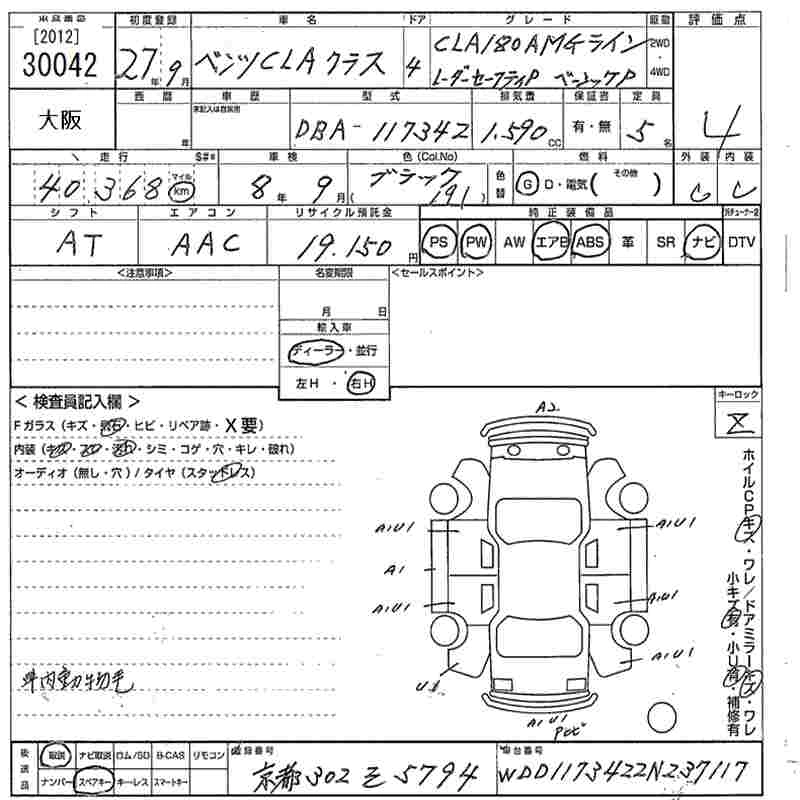 [2012]
30042
初度登録 車名 ドア グレード 駆動 評価点
27年9月 ベンツCLAクラス 4 CLA180AMGライン 2WD
レーダーセーフティP ベーシックP 4WD
大阪
西暦 車歴 型式 排気量 保証書 定員
年 DBA-117342 1.590 CC 有・無 5名 4
走行 車検 色(Col.No) 燃料 外装 内装
40,368 マイル km 8年9月 ブラック (191) 色替 G D・電気( その他 ) C C
シフト エアコン リサイクル預託金 純正装備品
AT AAC 19.150円 PS PW AW エアB ABS 革 SR ナビ DTV
<注意事項> 名変期限 <セールスポイント>
月 日
輸入車
ディーラー・並行
左H・右H
<検査員記入欄> キーロック
Fガラス(キズ・・ヒビ・リペア跡・X要)
内装(・・シミ・コゲ・穴・キレ・破れ)
オーディオ(無し・穴)/タイヤ(スタッドレス)
A2
A1U1 A1U1
A1
A1U1 A1U1
A1U1
U1
A1U1
ホイルCPキズ・ワレ/ドアミラーキズ・ワレ
小キズ有・小U有・補修有
車内動物毛
後送品 取説 ナビ取説 ロム/SD B-CAS リモコン 登録番号 車台番号
ナンバー スペアキー キーレス スマートキー 京都302 5794 WDD1173422N237117